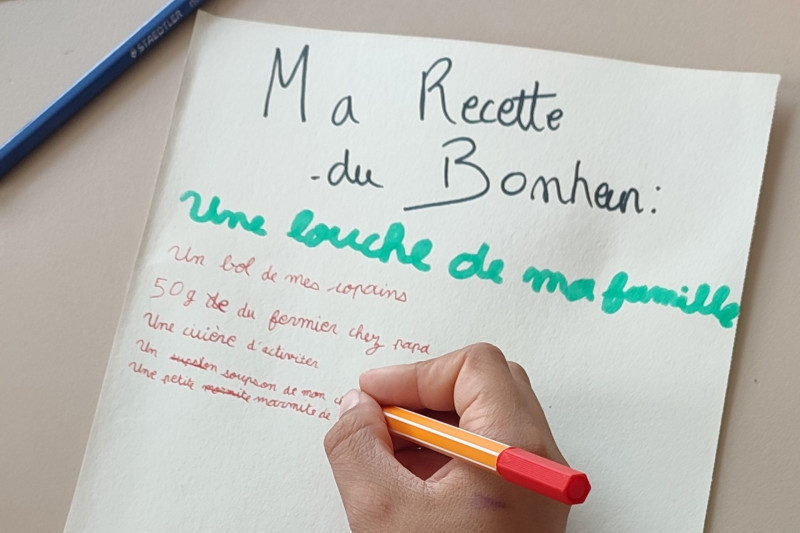 STAEDTLER
Ma Recette
du Bonheur:
Une louche de ma famille
Un bol de mes copains
50g de du fermier chez papa
Une cuière d'activiter
Un soupson de mon
Une petite marmite de